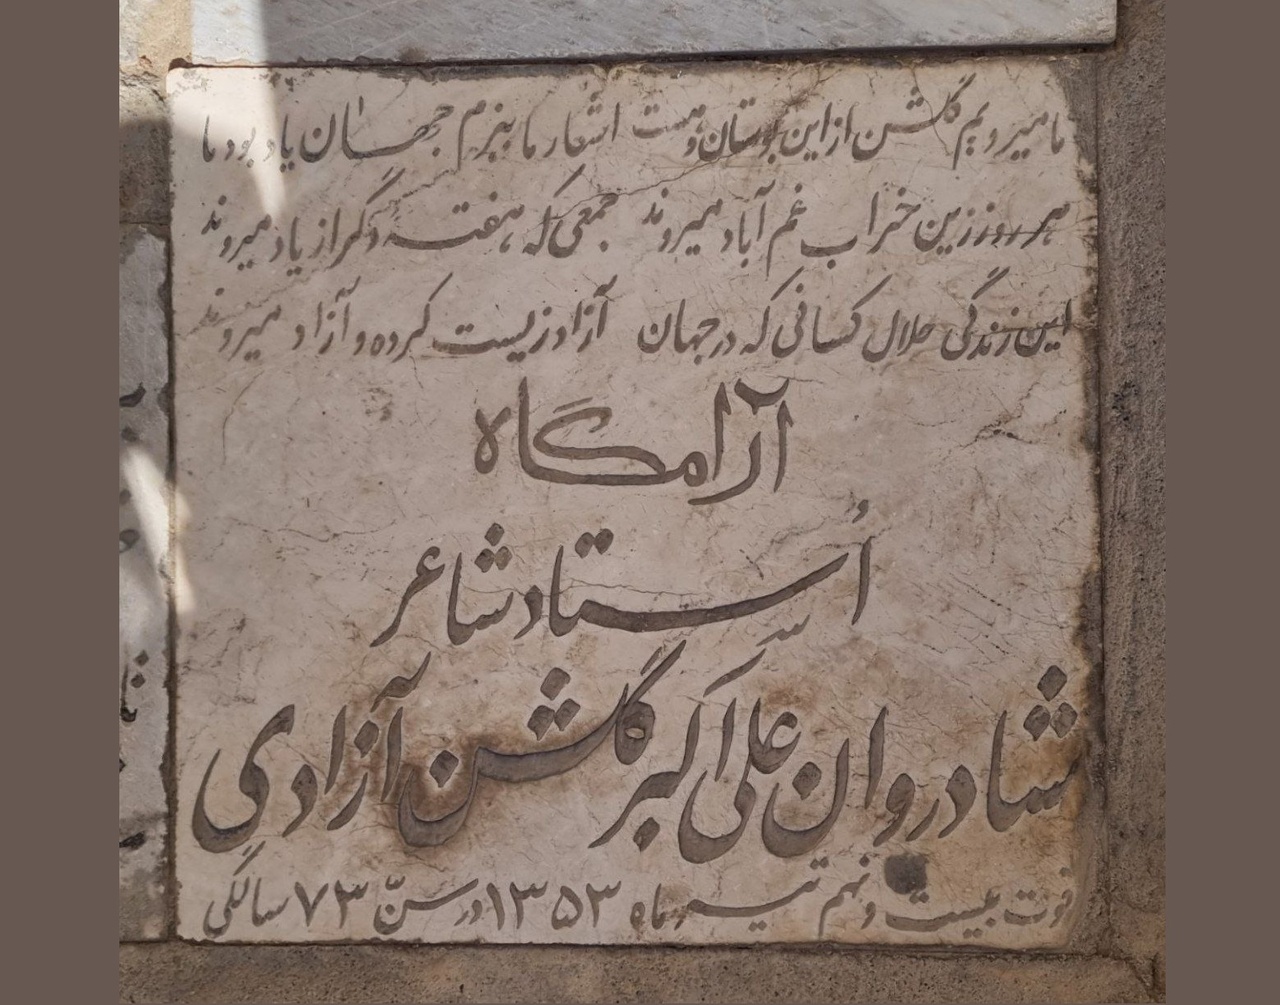 ما میرویم گلشن از این بوستان و هست اشعار ما ببزم جهان یادبود ما
هر روز زین خراب غم آباد میروند جمعی که هفتهٔ دگر از یاد میروند
این زندگی حلال کسانی که در جهان آزاد زیست کرده و آزاد میروند
آرامگاه
اُستاد شاعر
شادروان علی اکبر گلشن آزادی
فوت بیست و نهم تیر ماه ۱۳۵۳ در سنّ ۷۳ سالگی